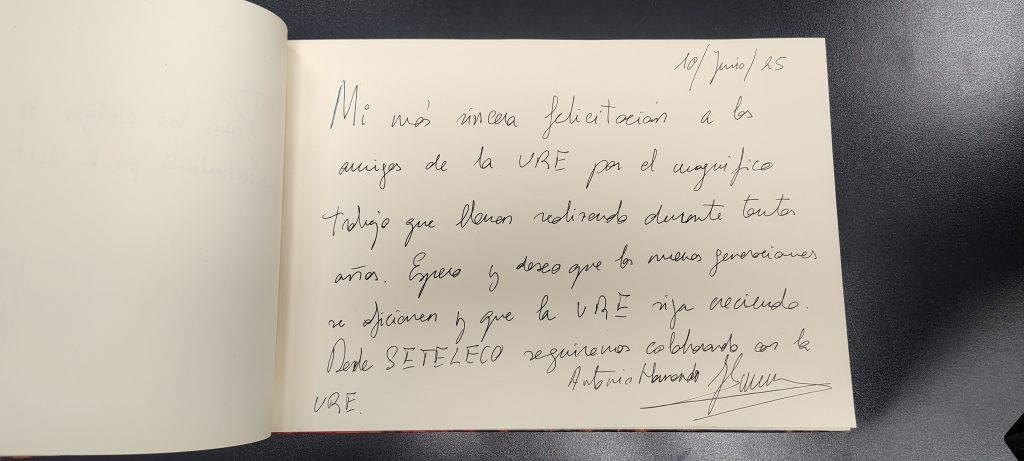 10/Junio/25
Mi más sincera felicitación a los
amigos de la URE por el magnifico
trabajo que llevan realizando durante tantos
años. Espero y deseo que las nuevas generaciones
se aficionen y que la URE siga creciendo.
Desde SETELECO seguiremos colaborando con la
URE.
Antonio